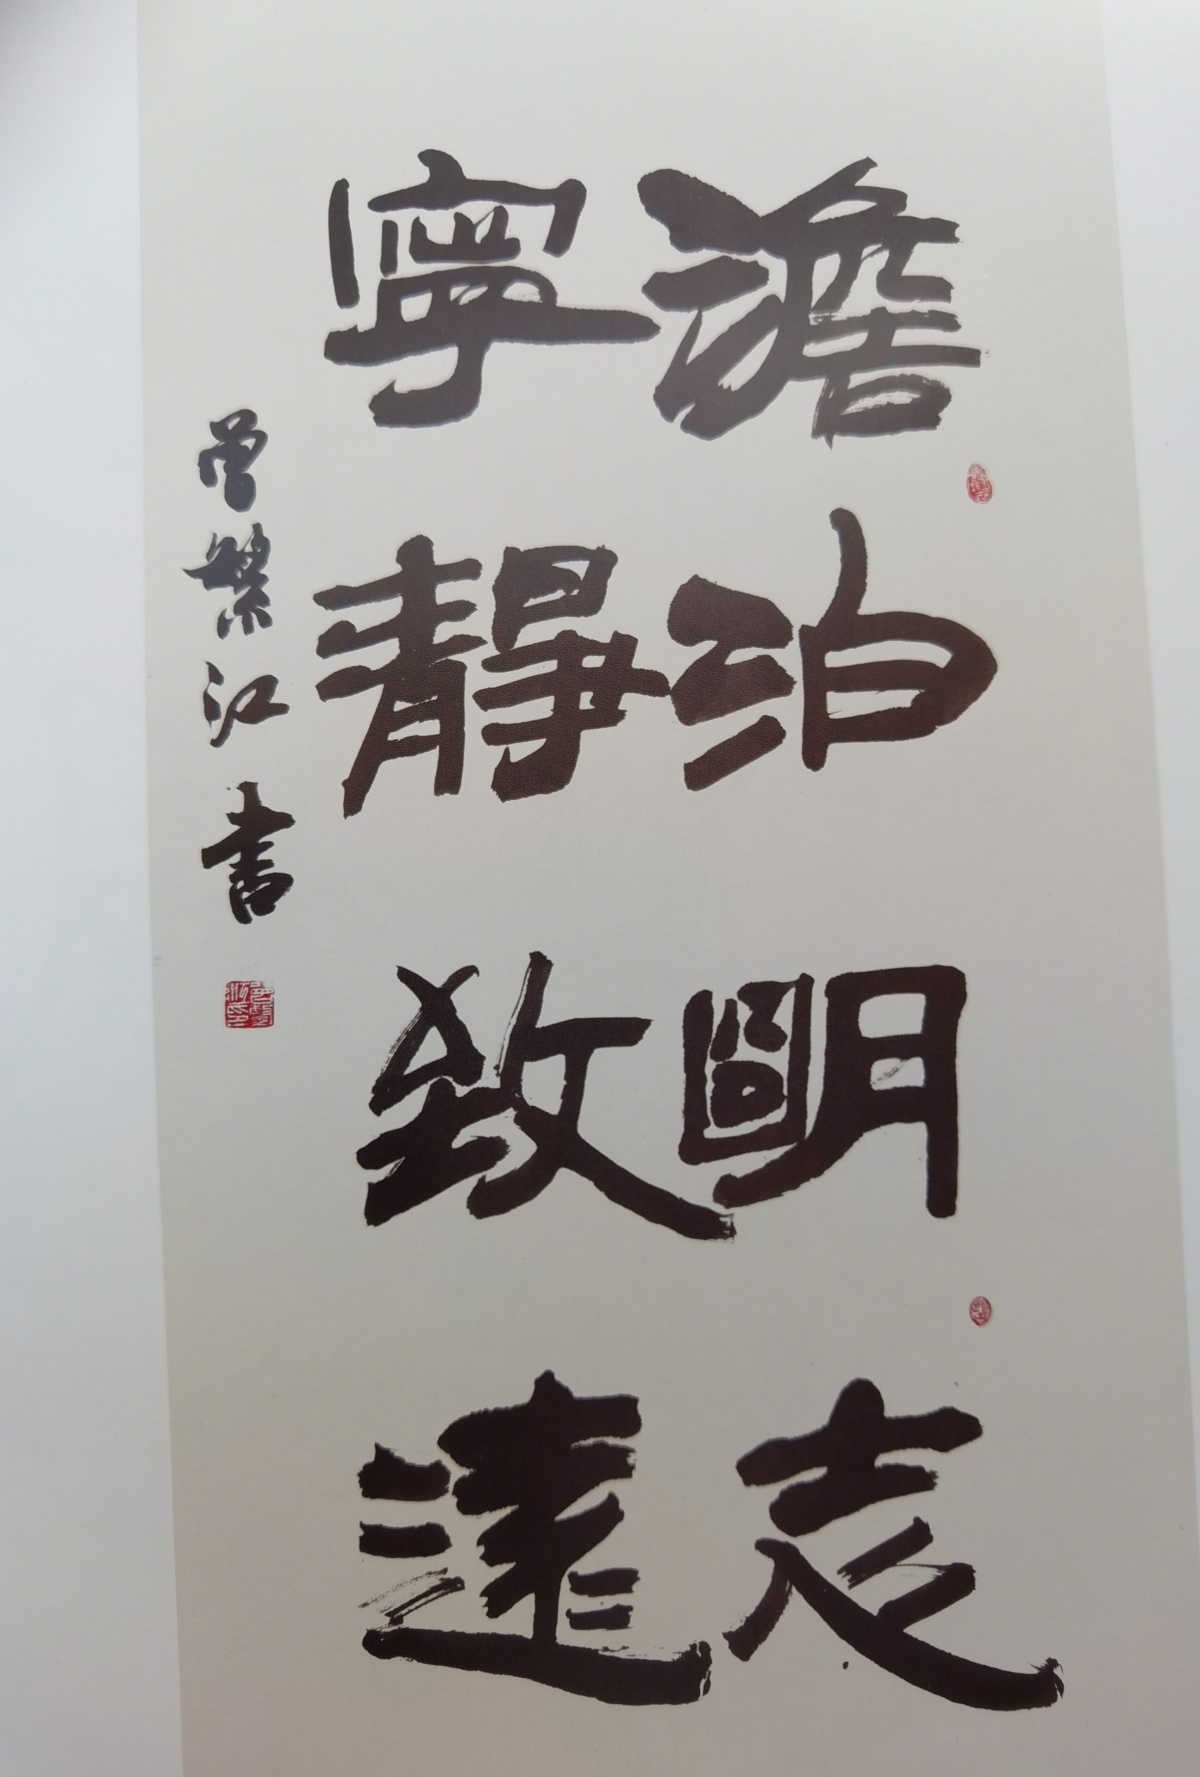 澹泊明志
寧靜致遠
曾繁江書